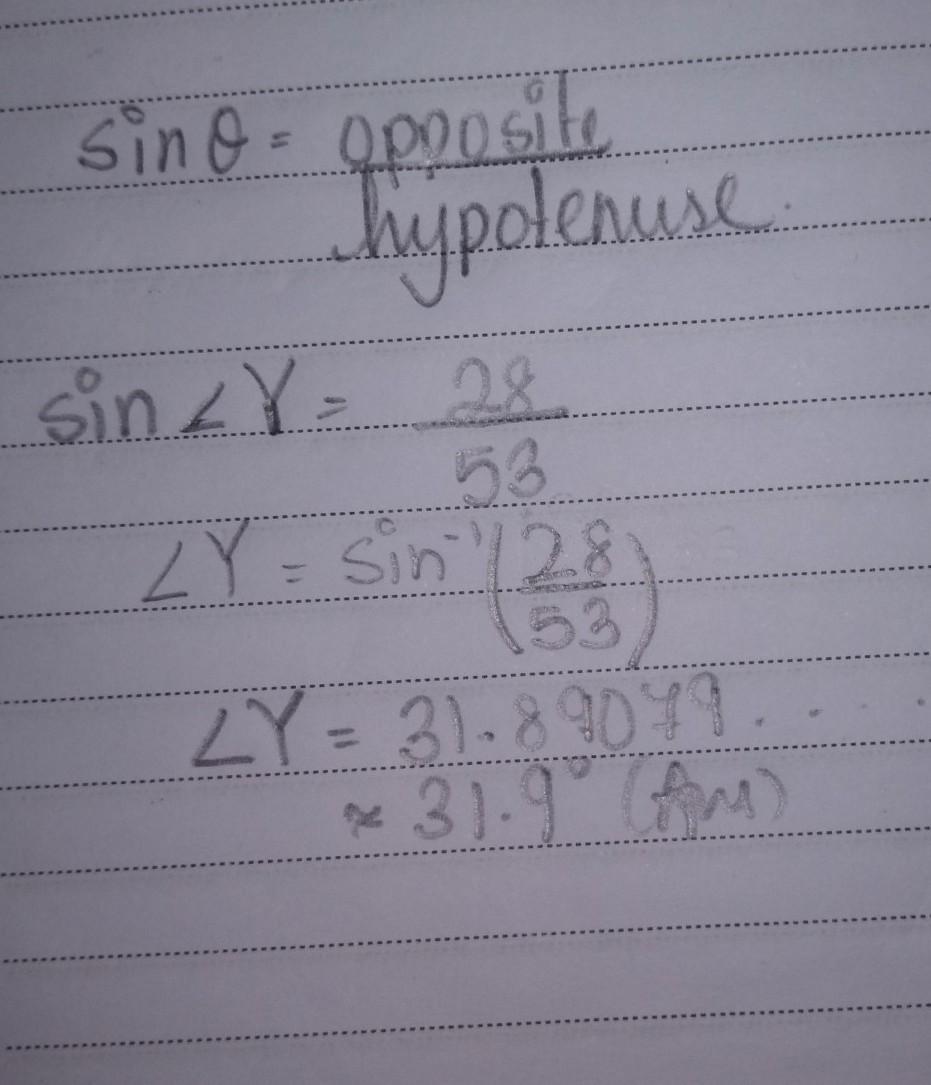 sin θ = opposite
hypotenuse.
sin ∠Y = 28
53
∠Y = sin⁻¹(28/53)
∠Y = 31.89079.....
≈ 31.9° (Ans)